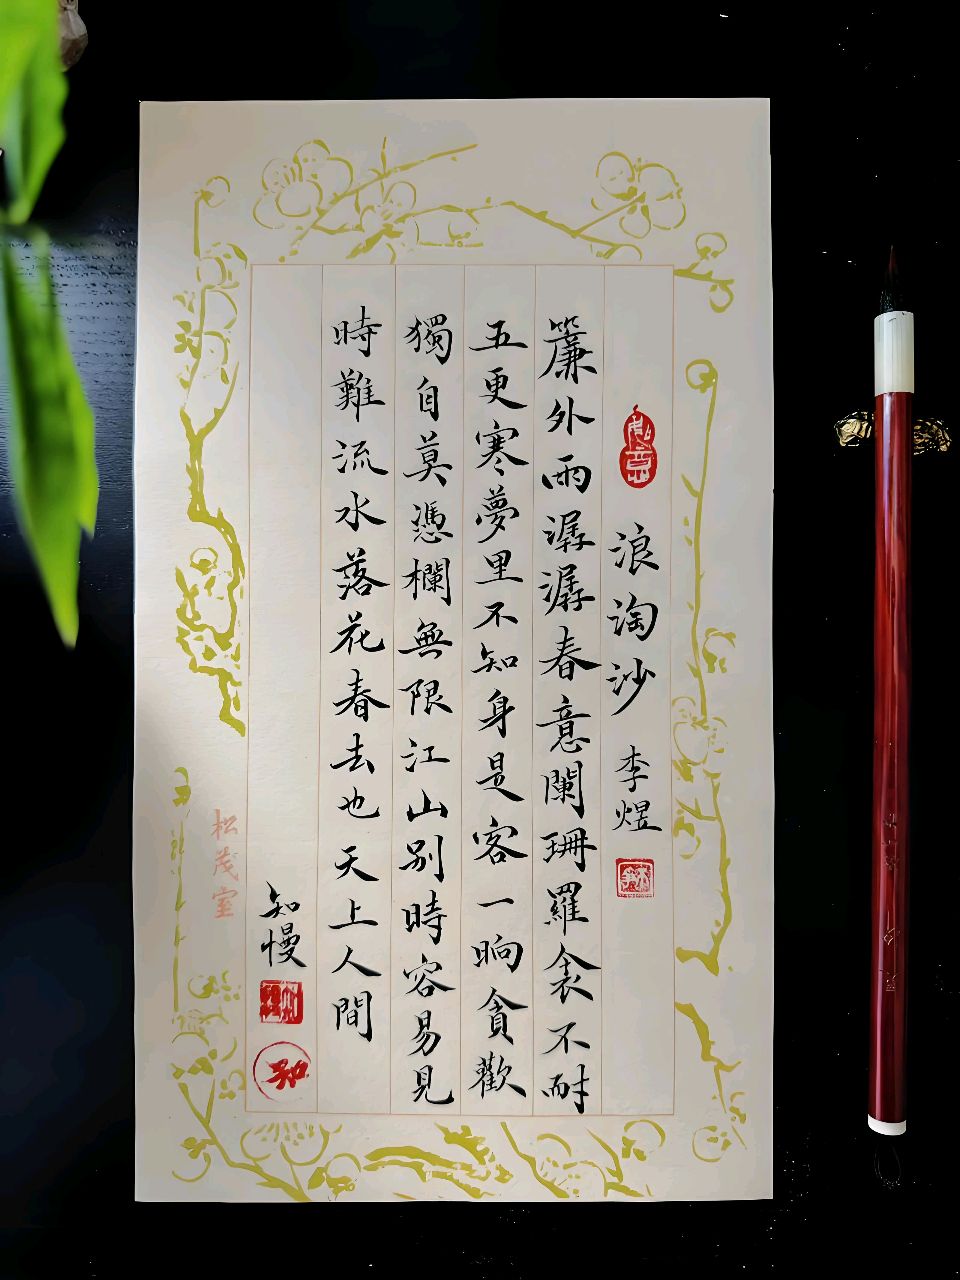 浪淘沙 李煜
簾外雨潺潺春意闌珊羅衾不耐
五更寒夢里不知身是客一晌貪歡
獨自莫憑欄無限江山別時容易見
時難流水落花春去也天上人間
知慢
知
松茂室